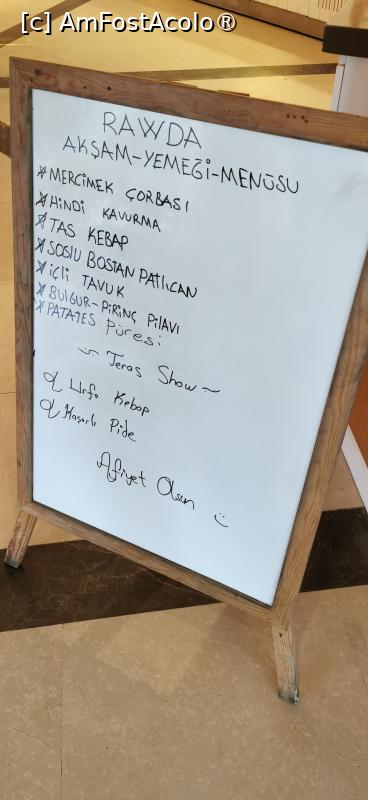 [c] AmFostAcolo®
RAWDA
AKŞAM-YEMEĞİ-MENÜSÜ
* MERCİMEK ÇORBASI
* HİNDİ KAVURMA
* TAS KEBAP
* SOSlU BOSTAN PATLICAN
* İÇLİ TAVUK
* BULGUR-PİRİNÇ PİLAVI
* PATATES Püresi
~ Teras Show ~
Urfa Kebap
Kaşarlı Pide
Afiyet Olsun
:)